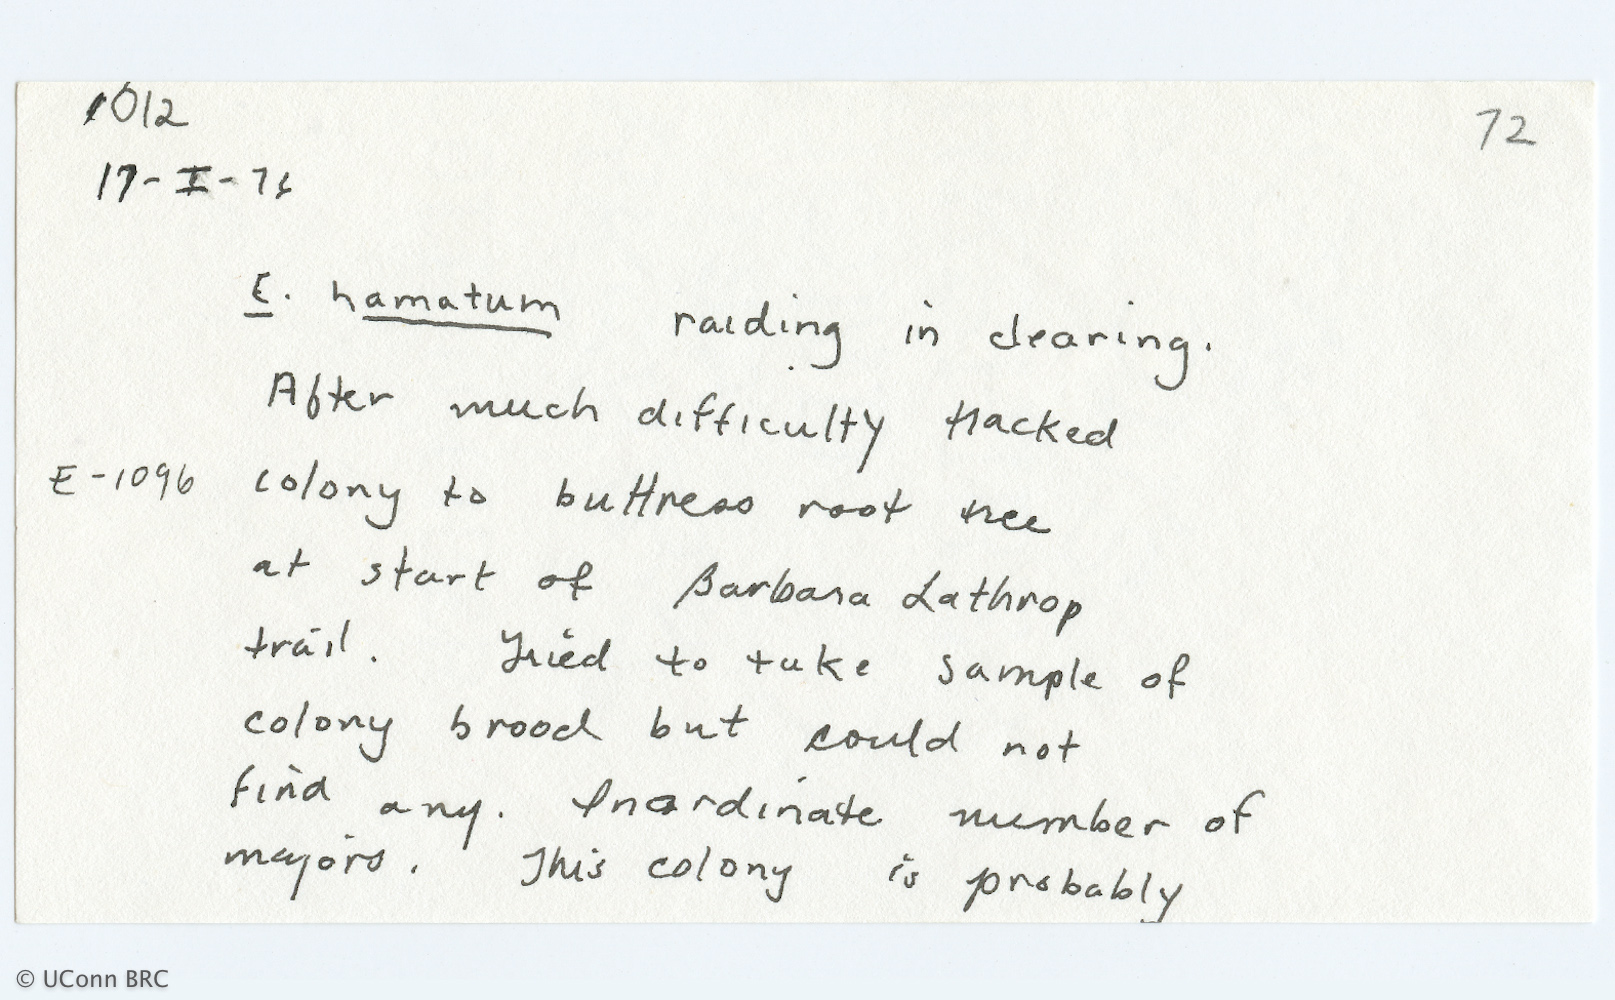 1012
72
17-I-76
E. hamatum raiding in clearing.
After much difficulty tracked
E-1096 colony to buttress root tree
at start of Barbara Lathrop
trail. Tried to take sample of
colony brood but could not
find any. Inordinate number of
majors. This colony is probably
© UConn BRC